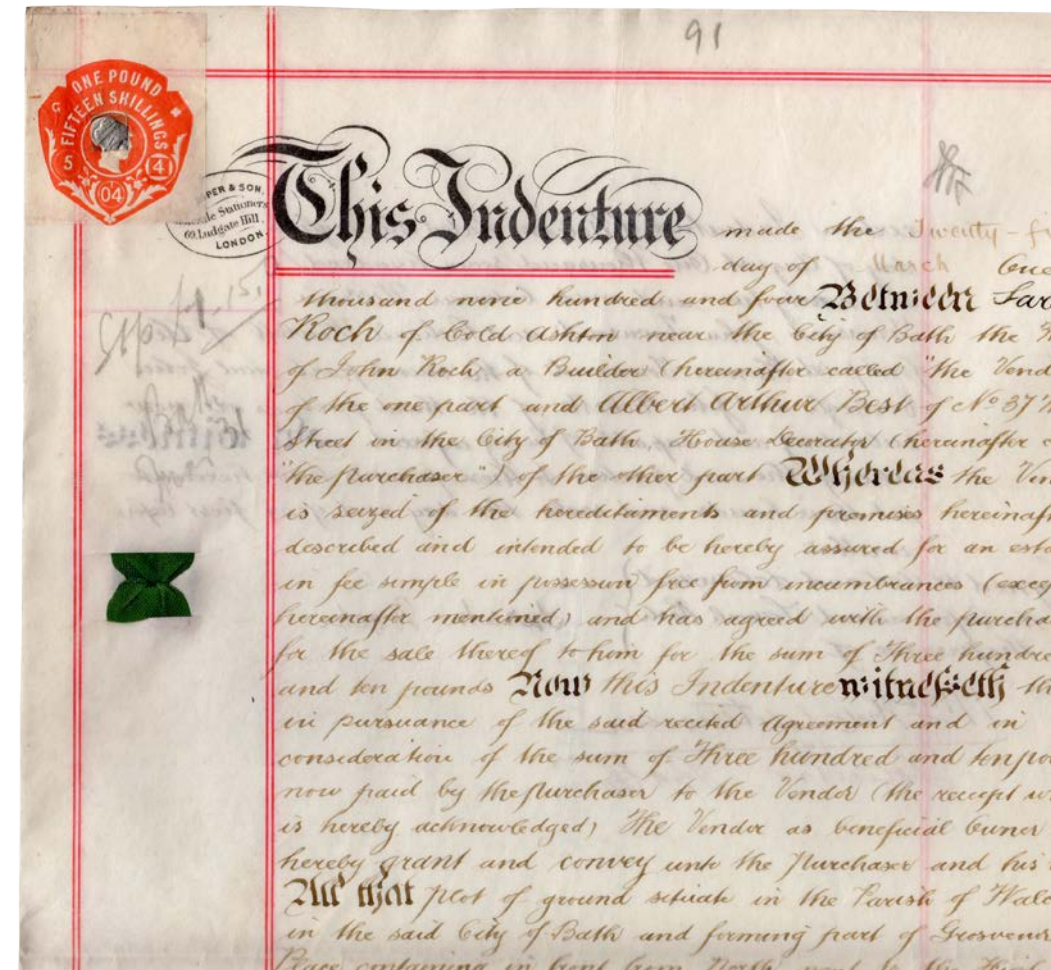 91
ONE POUND
FIFTEEN SHILLINGS
5 4
04
PER & SON.
Stationers
69, Ludgate Hill,
LONDON
This Indenture made the Twenty-
day of March One
thousand nine hundred and four Between
Koch of Cold Ashton near the City of Bath the
of John Koch a Builder (hereinafter called "the Vend
of the one part and Albert Arthur Best of No 37
Street in the City of Bath, House Decorator (hereinafter c
"the purchaser") of the other part Whereas the Ven
is seized of the hereditaments and premises hereinaf
described and intended to be hereby assured for an est
in fee simple in possession free from incumbrances (excep
hereinafter mentioned) and has agreed with the purcha
for the sale thereof to him for the sum of Three hundre
and ten pounds Now this Indenture witnesseth th
in pursuance of the said recited Agreement and in
consideration of the sum of Three hundred and ten po
now paid by the purchaser to the Vendor (the receipt w
is hereby acknowledged) The Vendor as beneficial Owner
hereby grant and convey unto the Purchaser and his
All that plot of ground situate in the Parish of Walc
in the said City of Bath and forming part of Grosvenor
Place containing in front from North